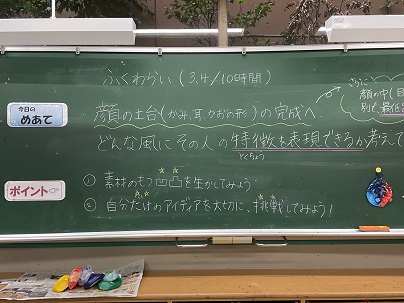 ふくわらい(3,4/10時間)
さらに
顔の中(目
別で、最低
今日の
めあて
顔の土台(かみ、耳、かおの形)の完成へ
どんな風に その人の 特徴を表現できるか考えて
とくちょう
ポイント
① 素材のもつ凹凸を生かしてみよう
② 自分だけのアイディアを大切に、挑戦してみよう!